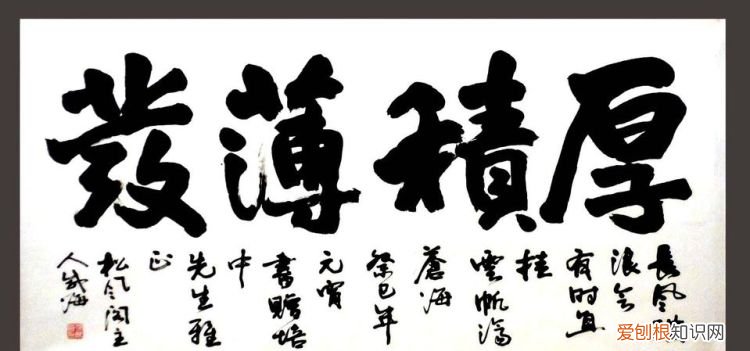 厚積薄發
長風
浪會
有時直
挂
雲帆濟
蒼海
癸巳年
元宵
書贈培
中
先生雅
正
松風閣主
人
爱刨根知识网